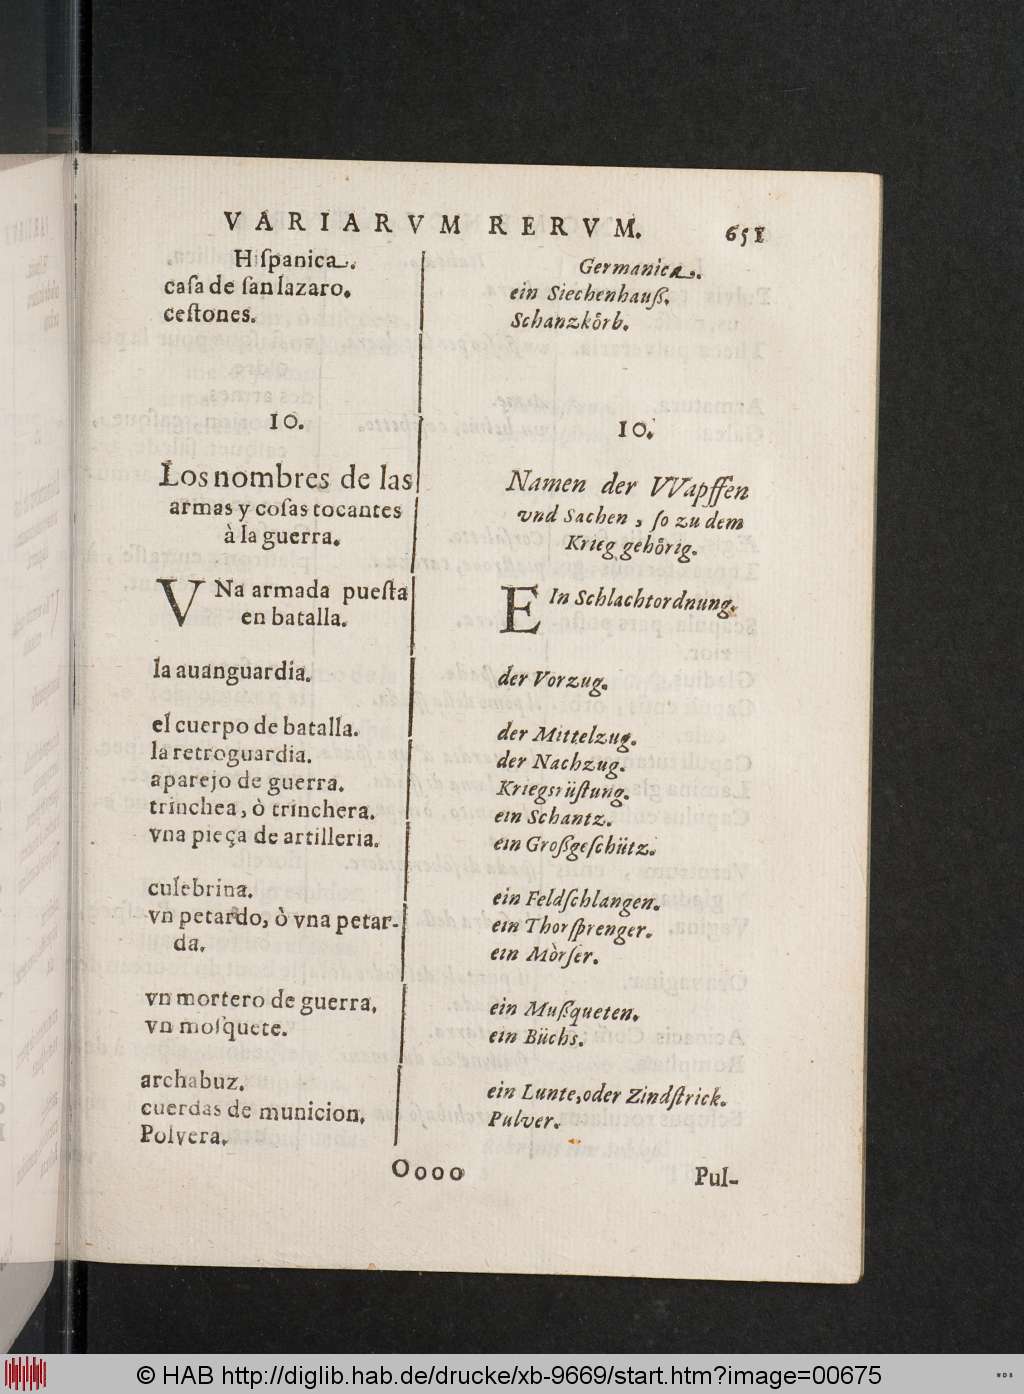 VARIARVM RERVM. 651
Hiſpanica.
caſa de ſan lazaro.
ceſtones.
10.
Los nombres de las
armas y coſas tocantes
à la guerra.
VNa armada pueſta
en batalla.
la auanguardia.
el cuerpo de batalla.
la retroguardia.
aparejo de guerra.
trinchea, ò trinchera.
vna pieça de artilleria.
culebrina.
vn petardo, ò vna petar-
da.
vn mortero de guerra.
vn moſquete.
archabuz.
cuerdas de municion.
Polvera.
Germanica.
ein Siechenhauß.
Schanzkoͤrb.
10.
Namen der VVapffen
vnd Sachen, ſo zu dem
Krieg gehoͤrig.
EIn Schlachtordnung.
der Vorzug.
der Mittelzug.
der Nachzug.
Kriegsrüſtung.
ein Schantz.
ein Großgeſchütz.
ein Feldſchlangen.
ein Thorſprenger.
ein Mòrſer.
ein Mußqueten.
ein Büchs.
ein Lunte, oder Zindſtrick.
Pulver.
Oooo
Pul-
© HAB http://diglib.hab.de/drucke/xb-9669/start.htm?image=00675